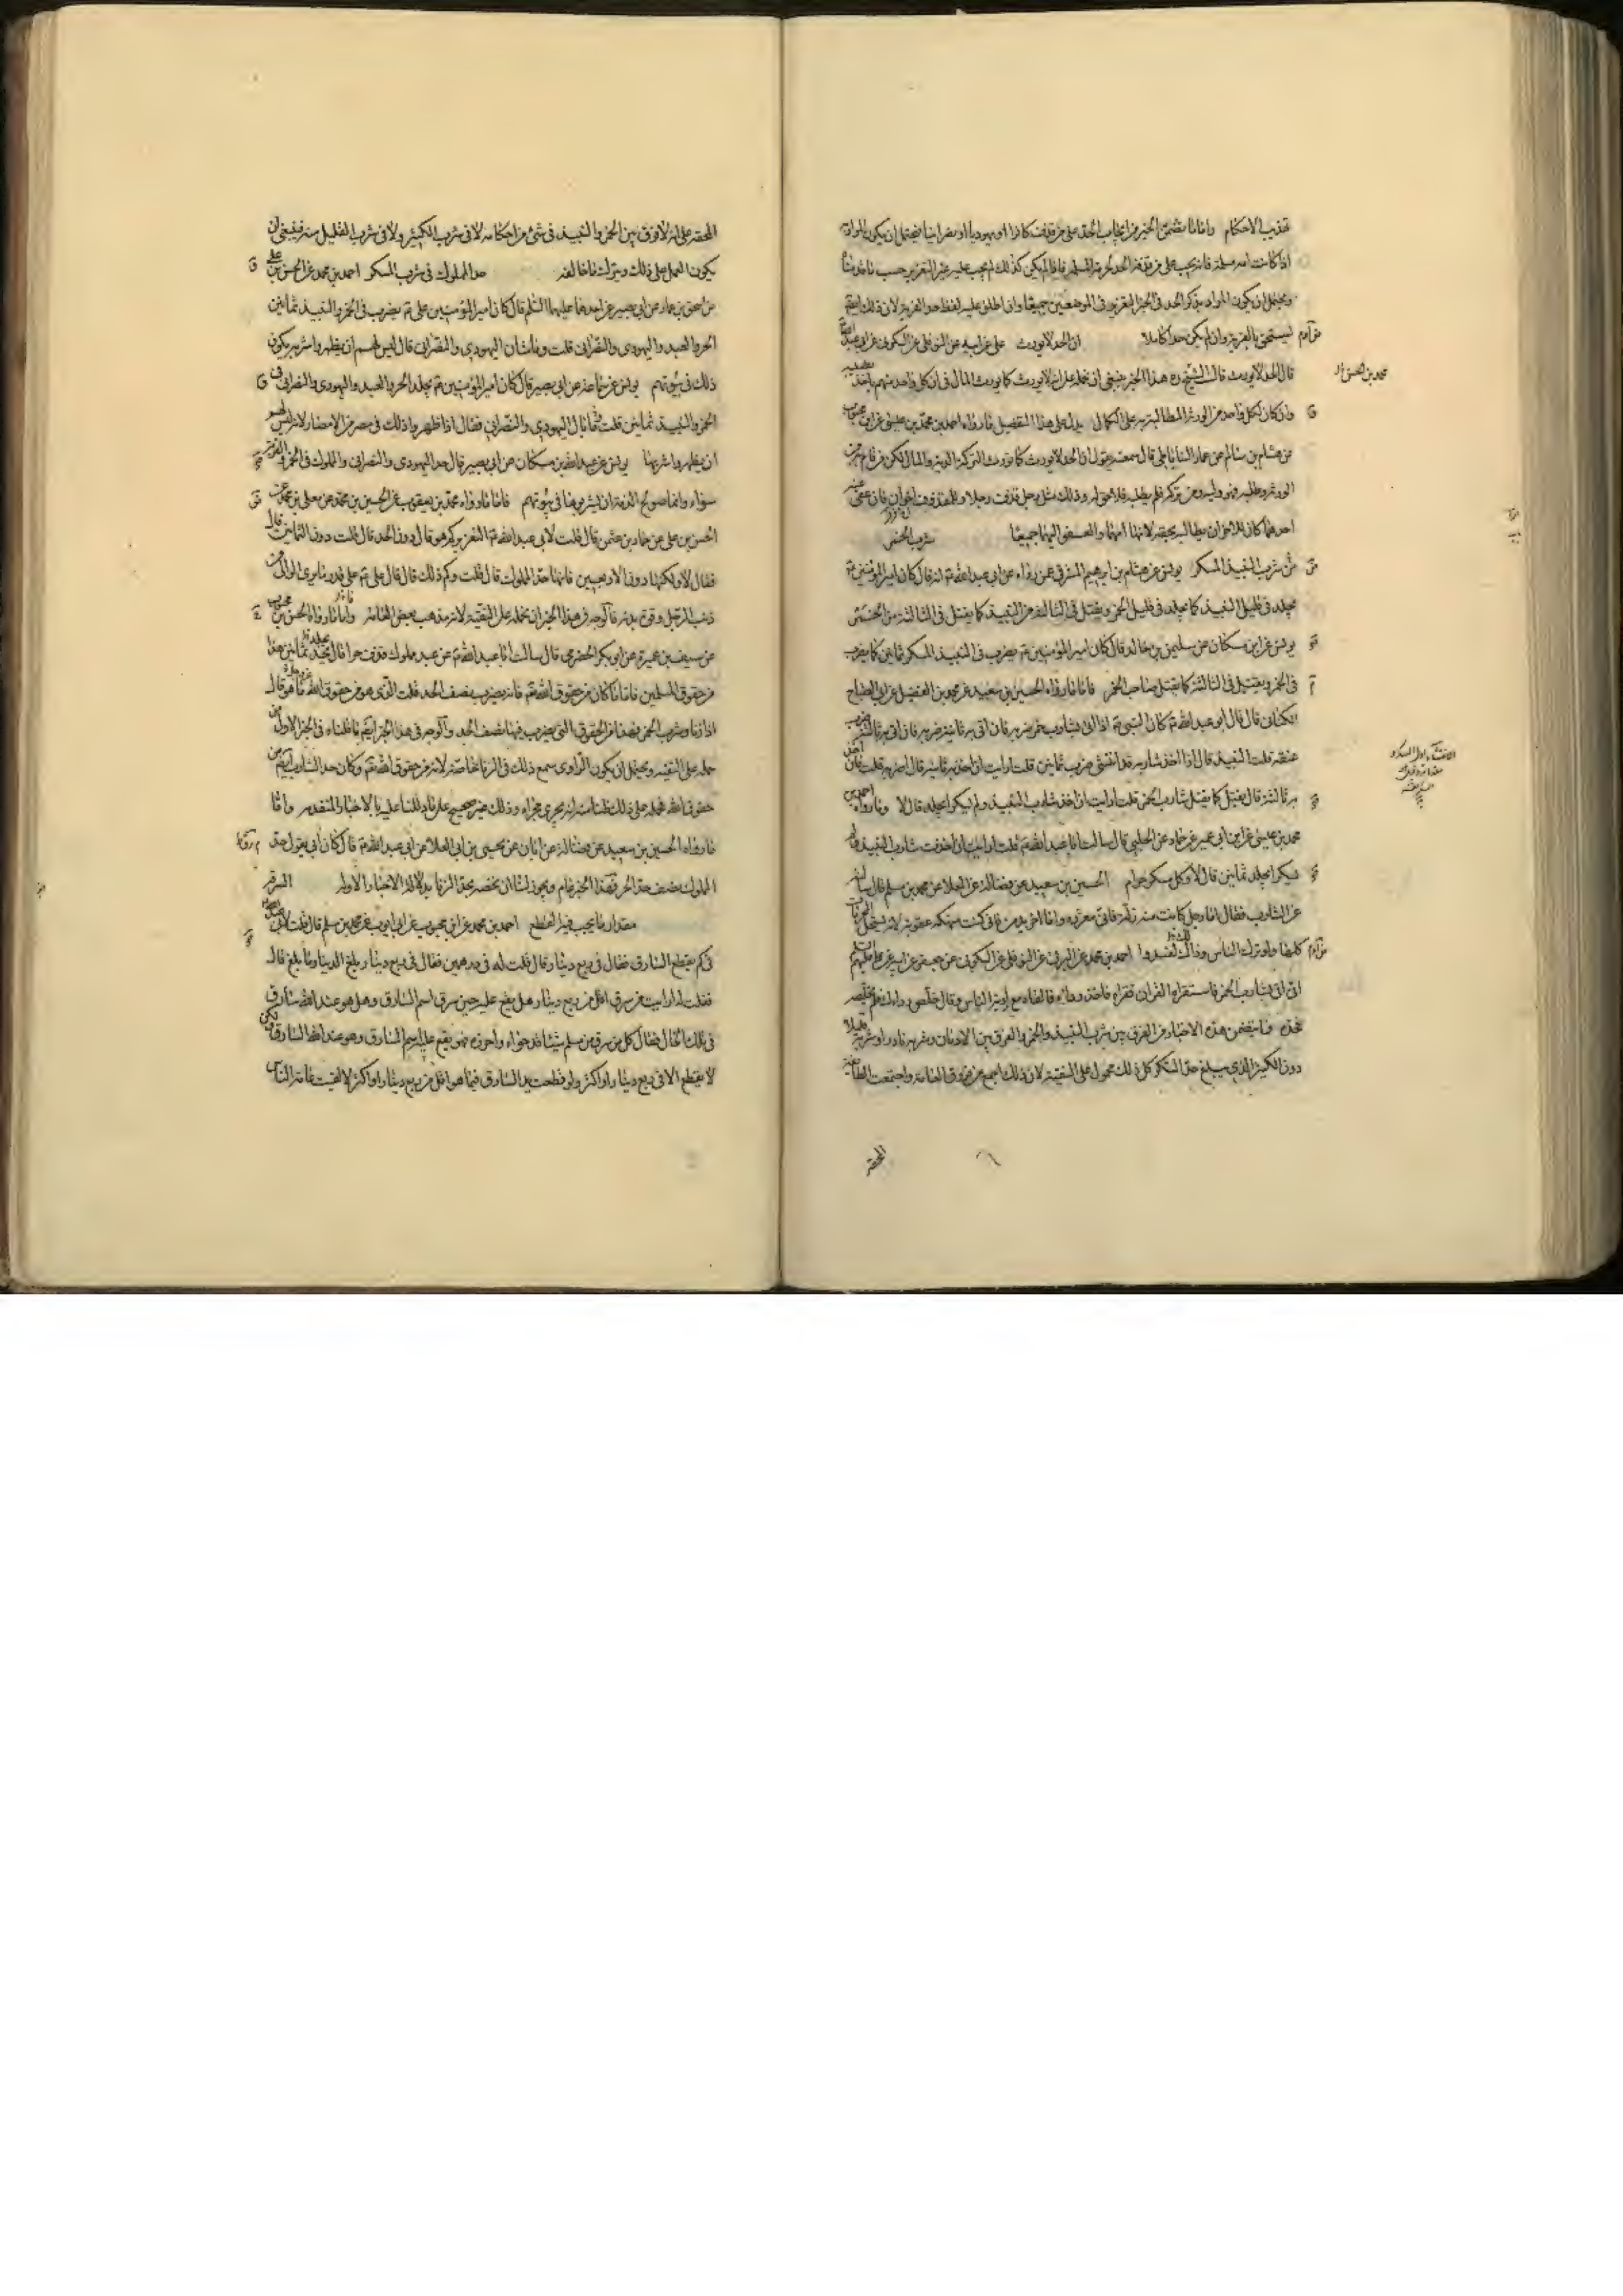 تهذيب الاحكام واما ما تضمن الخبر من ايجاب الحد على من قذف كافرا او يهوديا او نصرانيا فيحتمل ان يكون المراد به
اذا كانت امه مسلمة فانه يجب على من قذفه الحد لحرمة المسلم فاذا لم يكن كذلك لم يجب عليه غير التعزير حسب ما قدمناه
ويحتمل ان يكون المراد بذكر الحد في الخبر التعزير في الموضعين جميعا وان اطلق عليه لفظ حد القرية لان ذلك ايضا
يستحق بالفرية وان لم يكن حدا كاملا ان الحد لا يورث علي عن ابيه عن النوفلي عن السكوني عن ابي عبد الله
قال الحد لا يورث قال الشيخ ره هذا الخبر ينبغي ان نحمله على انه لا يورث كما يورث المال في ان كل واحد منهم ياخذ نصيبه
وان كان لكل واحد من الورثة المطالبة به على الكمال يدل على هذا التفصيل ما رواه احمد بن محمد بن عيسى عن ابن محبوب
عن هشام بن سالم عن عمار الساباطي قال سمعته يقول ان الحد لا يورث كما يورث التركة الدية والمال لكن من قام به من
الورثة وطلبه فهو وليه ومن تركه فلم يطلبه فلا حق له وذلك مثل رجل قذف رجلا وللمقذوف اخوان فان عفى عنه
احدهما كان للاخر ان يطالبه بحقه لانها امهما والعفو اليهما جميعا شرب الخمر
من شرب النبيذ المسكر يونس عن هشام بن ابرهيم المشرقي عمن رواه عن ابي عبد الله ع انه قال كان امير المؤمنين ع
يجلد في قليل النبيذ كما يجلد في قليل الخمر ويقتل في الثالثة من النبيذ كما يقتل في الثالثة من الخمر
يونس عن ابن مسكان عن سليمن بن خالد قال كان امير المؤمنين ع يضرب في النبيذ المسكر ثمانين كما يضرب
في الخمر ويقتل في الثالثة كما يقتل صاحب الخمر فاما ما رواه الحسين بن سعيد عن محمد بن الفضيل عن ابي الصباح
الكناني قال قال ابو عبد الله ع كان النبي ص اذا اتي بشارب خمر ضربه فان اتي به ثانية ضربه فان اتي به ثالثة ضرب
عنقه قلت النبيذ قال اذا اخذ شاربه قد انتشى ضرب ثمانين قلت ارايت ان اخذ به ثانية قال اضربه قلت فان اخذ
به ثالثة قال يقتل كما يقتل شارب الخمر قلت ارايت ان اخذ شارب النبيذ ولم يسكر ايجلد قال لا وما رواه احمد بن
محمد بن عيسى عن ابن ابي عمير عن حماد عن الحلبي قال سالت ابا عبد الله ع قلت ارايت ان اخذت شارب النبيذ ولم
يسكر ايجلد ثمانين قال لا وكل مسكر حرام الحسين بن سعيد عن فضالة عن العلا عن محمد بن مسلم قال سالته
عن الشارب فقال اما رجل كانت منه زلة فاني معزره واما اخر يدمن فاني كنت منهكه عقوبة لانه يستحل المحرمات
كلها ولو ترك الناس وذلك لفسدوا احمد بن محمد عن البرقي عن النوفلي عن السكوني عن جعفر عن ابيه عن علي عليهم السلم
انه اتي بشارب الخمر فاستقراه القران فقراه فاخذ رداءه فالقاه مع اردية الناس وقال خلص رداءك فلم يخلصه
فحده فما يتضمن هذه الاخبار من الفرق بين شرب النبيذ والخمر والفرق بين الادمان وشربه نادرا وشربه قليلا
دون الكثير الذي يبلغ حد السكر كل ذلك محمول على التقية لان ذلك اجمع من فروق العامة واجتمعت الطائفة
المحقة
المحقة على انه لا فرق بين الخمر والنبيذ في شئ من احكامه لا في شرب الكثير ولا في شرب القليل منه فينبغي ان
يكون العمل على ذلك ويترك ما خالفه حد المملوك في شرب المسكر احمد بن محمد عن الحسن بن علي
عن اسحق بن عمار عن ابي بصير عن احدهما عليهما السلم قال كان امير المؤمنين علي ع يضرب في الخمر والنبيذ ثمانين
الحر والعبد واليهودي والنصراني قلت وما شان اليهودي والنصراني قال ليس لهم ان يظهروا شربه يكون
ذلك في بيوتهم يونس عن سماعة عن ابي بصير قال كان امير المؤمنين ع يجلد الحر والعبد واليهودي والنصراني في
الخمر والنبيذ ثمانين قلت ما بال اليهودي والنصراني فقال اذا ظهروا ذلك في مصر من الامصار لانه ليس لهم
ان يظهروا شربها يونس عن عبد الله بن مسكان عن ابي بصير قال حد اليهودي والنصراني والمملوك في الخمر والفرية
سواء وانما صولح اهل الذمة ان يشربوها في بيوتهم فاما ما رواه محمد بن يعقوب عن الحسين بن محمد عن معلى بن محمد عن
الحسن بن علي عن حماد بن عثمن قال قلت لابي عبد الله ع التعزير كم هو قال دون الحد قال قلت دون الثمانين قال
فقال لا ولكنها دون الاربعين فانها حد المملوك قال قلت وكم ذلك قال قال علي ع على قدر ما يرى الوالي من
ذنب الرجل وقوة بدنه فالوجه في هذا الخبر ان نحمله على التقية لانه مذهب بعض العامة واما ما رواه الحسن بن محبوب
عن سيف بن عميرة عن ابي بكر الحضرمي قال سالت ابا عبد الله ع عن عبد مملوك قذف حرا قال يجلد ثمانين هذا
من حقوق المسلمين فاما ما كان من حقوق الله تع فانه يضرب نصف الحد قلت الذي هو من حقوق الله ما هو قال
اذا زنا وشرب الخمر فهذا من الحقوق التي يضرب فيها نصف الحد والوجه في هذا الخبر ايضا ما قلناه في الخبر الاول من
حمله على التقية ويحتمل ان يكون الراوي سمع ذلك في الزنا خاصة لانه من حقوق الله تع وكان حد الشارب ايضا من
حقوق الله فحمله على ذلك ظنا منه انه يجري مجراه وذلك غير صحيح على ما دللنا عليه بالاخبار المتقدمة واما
ما رواه الحسين بن سعيد عن فضالة عن ابان عن يحيى بن ابي العلا عن ابي عبد الله ع قال كان ابي يقول حد
المملوك نصف حد الحر فهذا الخبر عام ويجوز لنا ان نخصه بحد الزنا بدلالة الاخبار الاولة السرقة
مقدار ما يجب فيه القطع احمد بن محمد عن ابن محبوب عن ابي ايوب عن محمد بن مسلم قال قلت لابي عبد الله
في كم يقطع السارق فقال في ربع دينار وقال قلت له في درهمين فقال في ربع دينار بلغ الدينار ما بلغ قال
فقلت له ارايت من سرق اقل من ربع دينار هل يقع عليه حين سرق اسم السارق وهل هو عند الله سارق
في تلك الحال فقال كل من سرق من مسلم شيئا قد حواه واحرزه فهو يقع عليه اسم السارق وهو عند الله السارق ولكن
لا يقطع الا في ربع دينار او اكثر ولو قطعت يد السارق فيما هو اقل من ربع دينار او اكثر لالفيت عامة الناس